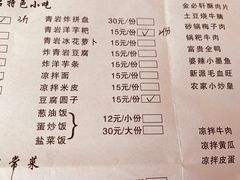 名特色小吃
青岩炸拼盘 30元/份
青岩洋芋粑 15元/份 ✓
青岩冰花萝卜 15元/份
炸青岩豆腐 15元/份
炸洋芋条 15元/份
凉拌面 15元/份
凉拌米皮 15元/份
豆腐圆子 15元/份 ✓
葱油饭
蛋炒饭 12元/小份
盐菜饭 30元/大份
常菜
金必轩酥肉片
土豆烧牛腩
砂锅梅子肉
锅粑牛肉
富贵全鸭
婆辣小墨鱼
新派毛血旺
农家小炒皇
凉拌牛肉
凉拌黄瓜
凉拌皮蛋